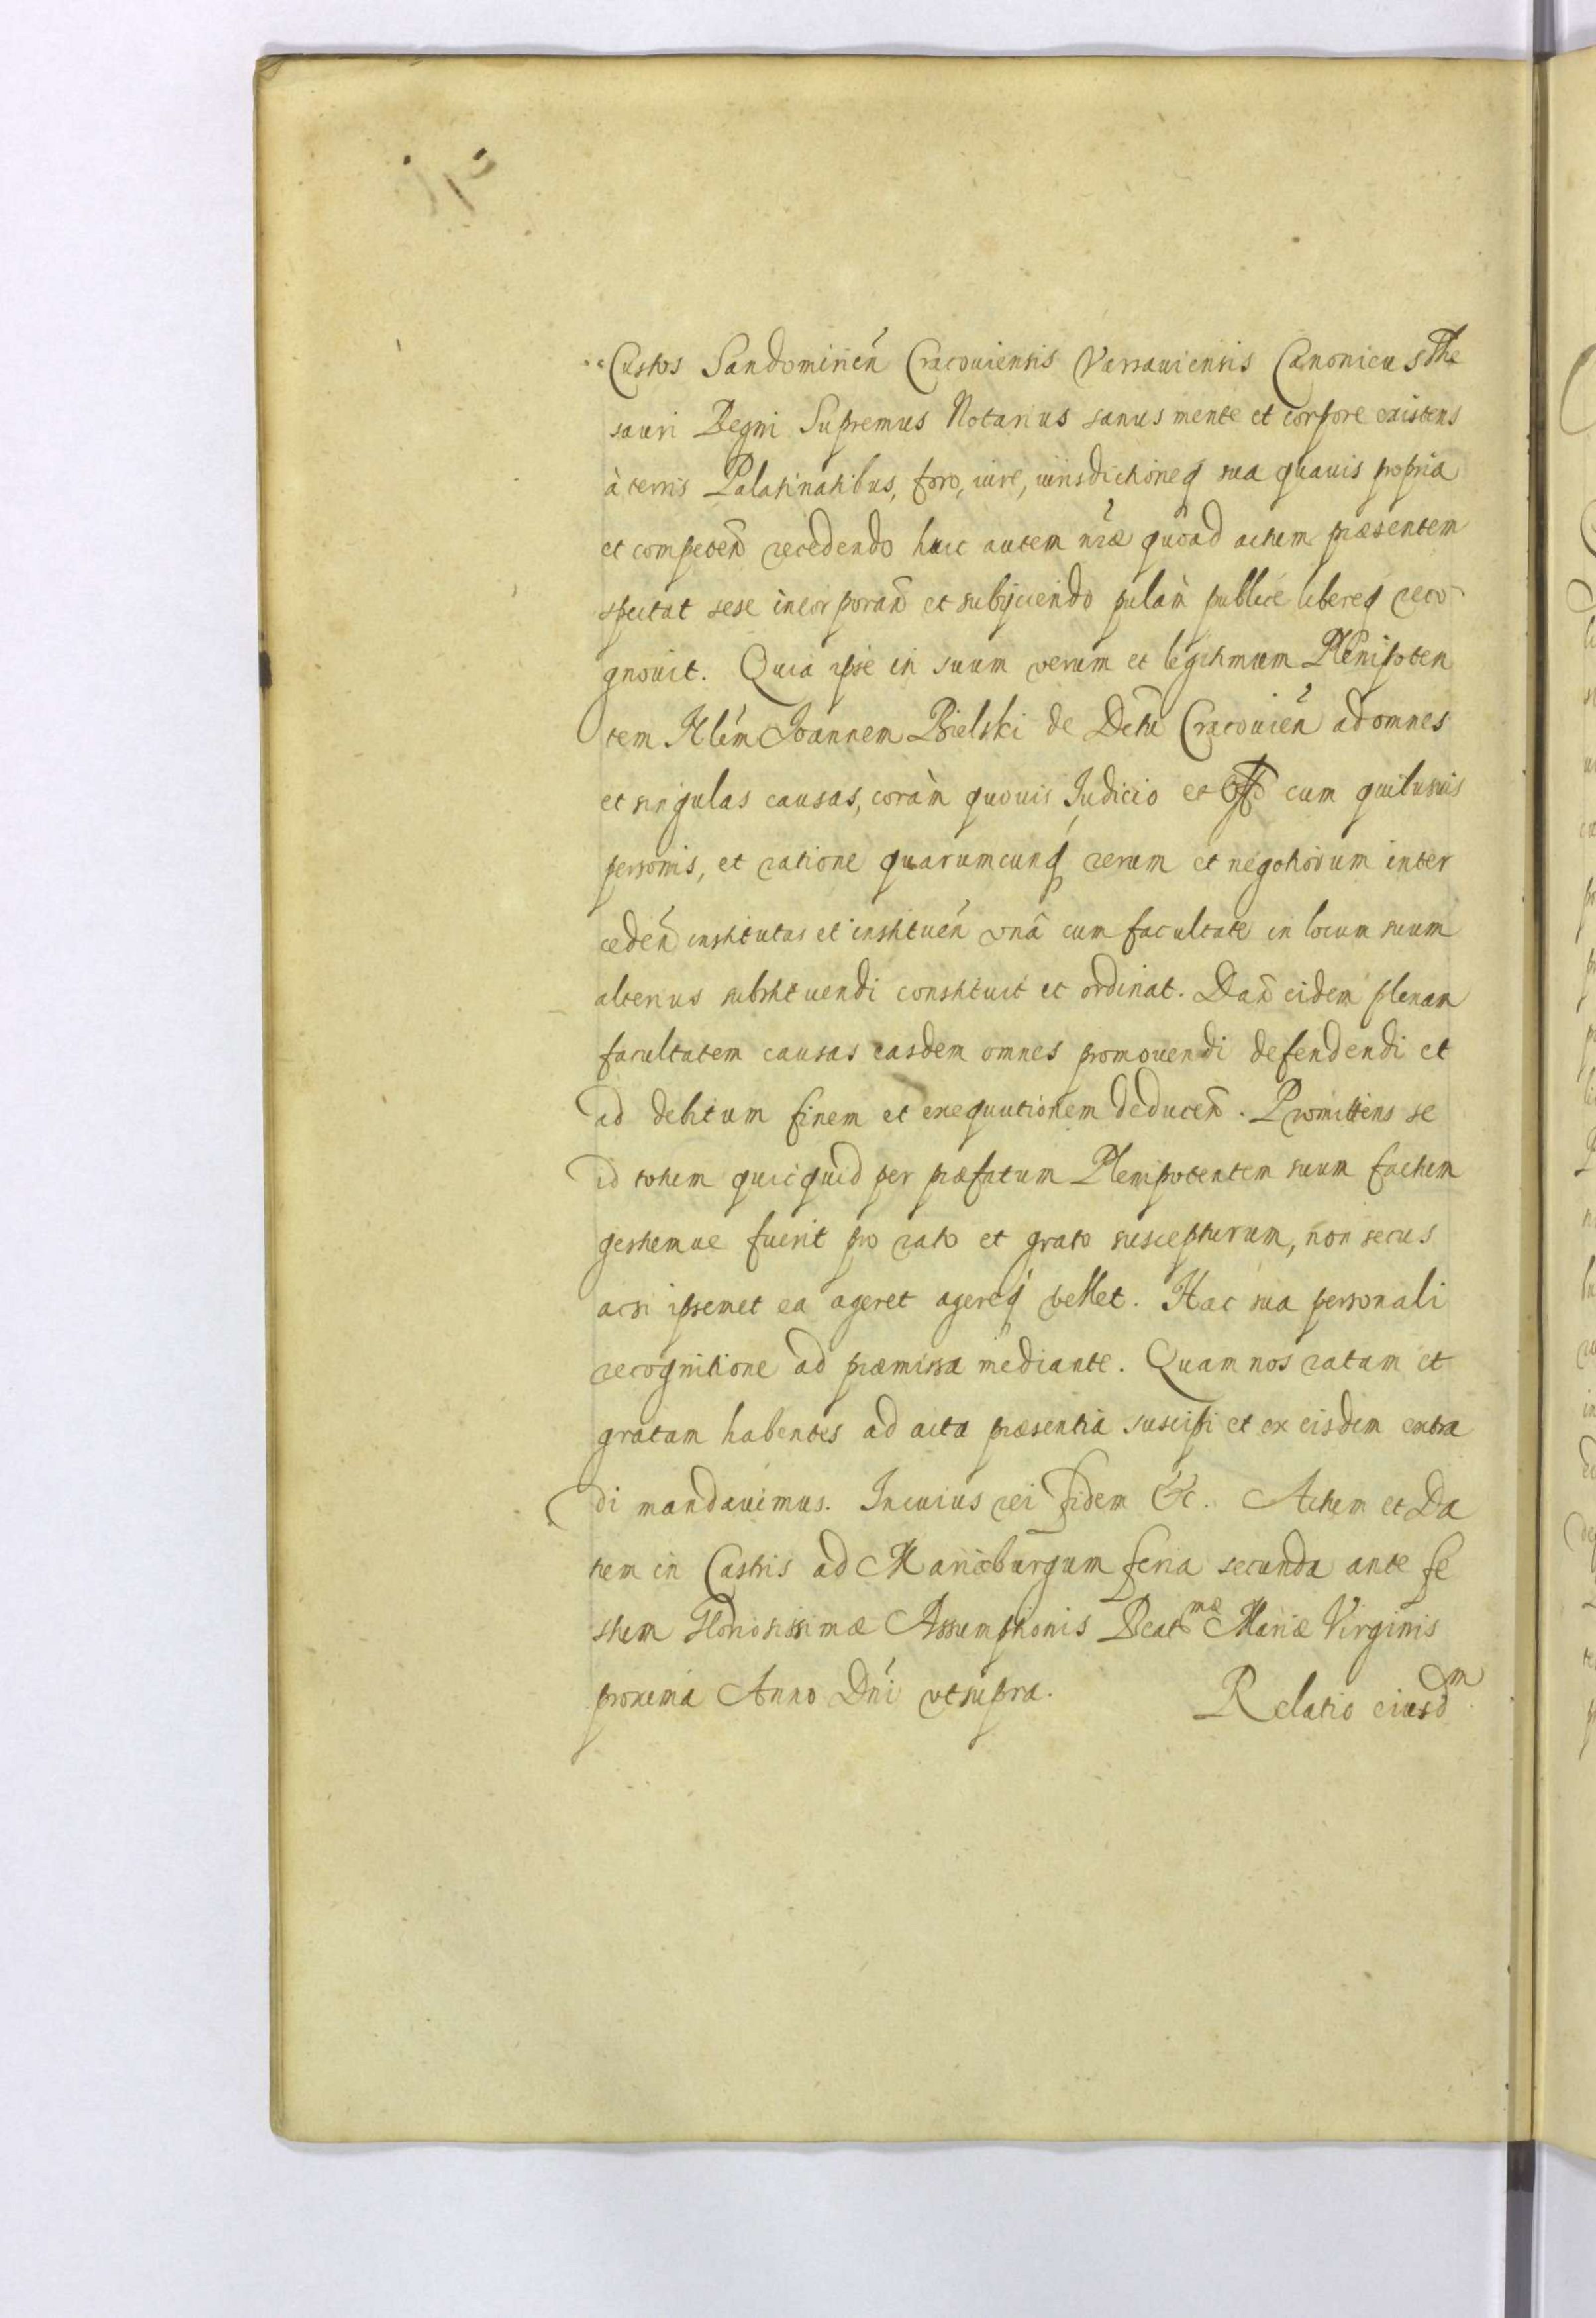 Custos Sandomirień Cracouiensis Varsauiensis Canonicus The
sauri Regni Supremus Notarius sanus mente et corpore existens
à terris Palatinatibus, foro, iure, iurisdictioneq sua quauis propria
et competeñ recedendo huic autem nr̃æ quoad actum præsentem
spectat sese incorporañ et subijciendo palàm publice libereq reco
gnouit. Quia ipse in suum verum et legitimum Plenipoten
tem Joannem Bielski de Cracouień ad omnes
et singulas causas, coràm quouis Judicio et Offo cum quibusuis
personis, et ratione quarumcunq rerum et negotiorum inter
cedeń institutas et institueń vnâ cum facultate in locum suum
alterius substituendi constituit et ordinat. Dañ eidem plenam
facultatem causas easdem omnes promouendi defendendi et
ad debitum finem et exequutionem deduceñ. Promittens se
id totum quicquid per præfatum Plenipotentem suum factum
gestumue fuerit pro rato et grato suscepturum, non secus
acsi ipsemet ea ageret agereq vellet. Hac sua personali
recognitione ad præmissa mediante. Quam nos ratam et
gratam habentes ad acta præsentia suscipi et ex eisdem extra
di mandauimus. In cuius rei fidem &c. Actum et Da
tum in Castris ad Mariæburgum feria secunda ante fe
stum Gloriosissimæ Assumptionis Beatmæ Mariæ Virginis
proxima Anno Dńi vt supra. Relatio eiusdm